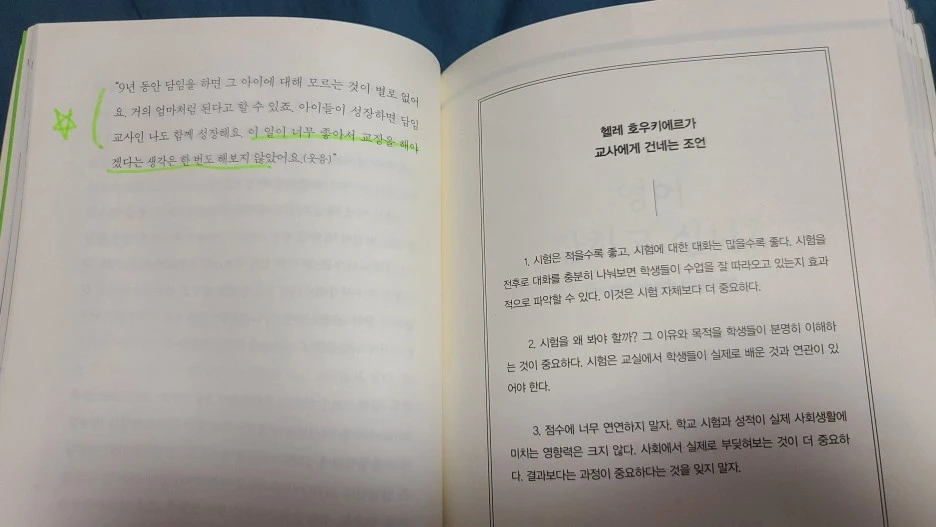 "9년 동안 담임을 하면 그 아이에 대해 모르는 것이 별로 없어
요. 거의 엄마처럼 된다고 할 수 있죠. 아이들이 성장하면 담임
교사인 나도 함께 성장해요. 이 일이 너무 좋아서 교장을 해야
겠다는 생각은 한 번도 해보지 않았어요.(웃음)"
헬레 호우키에르가
교사에게 건네는 조언
1. 시험은 적을수록 좋고, 시험에 대한 대화는 많을수록 좋다. 시험을
전후로 대화를 충분히 나눠보면 학생들이 수업을 잘 따라오고 있는지 효과
적으로 파악할 수 있다. 이것은 시험 자체보다 더 중요하다.
2. 시험을 왜 봐야 할까? 그 이유와 목적을 학생들이 분명히 이해하
는 것이 중요하다. 시험은 교실에서 학생들이 실제로 배운 것과 연관이 있
어야 한다.
3. 점수에 너무 연연하지 말자. 학교 시험과 성적이 실제 사회생활에
미치는 영향력은 크지 않다. 사회에서 실제로 부딪혀보는 것이 더 중요하
다. 결과보다는 과정이 중요하다는 것을 잊지 말자.